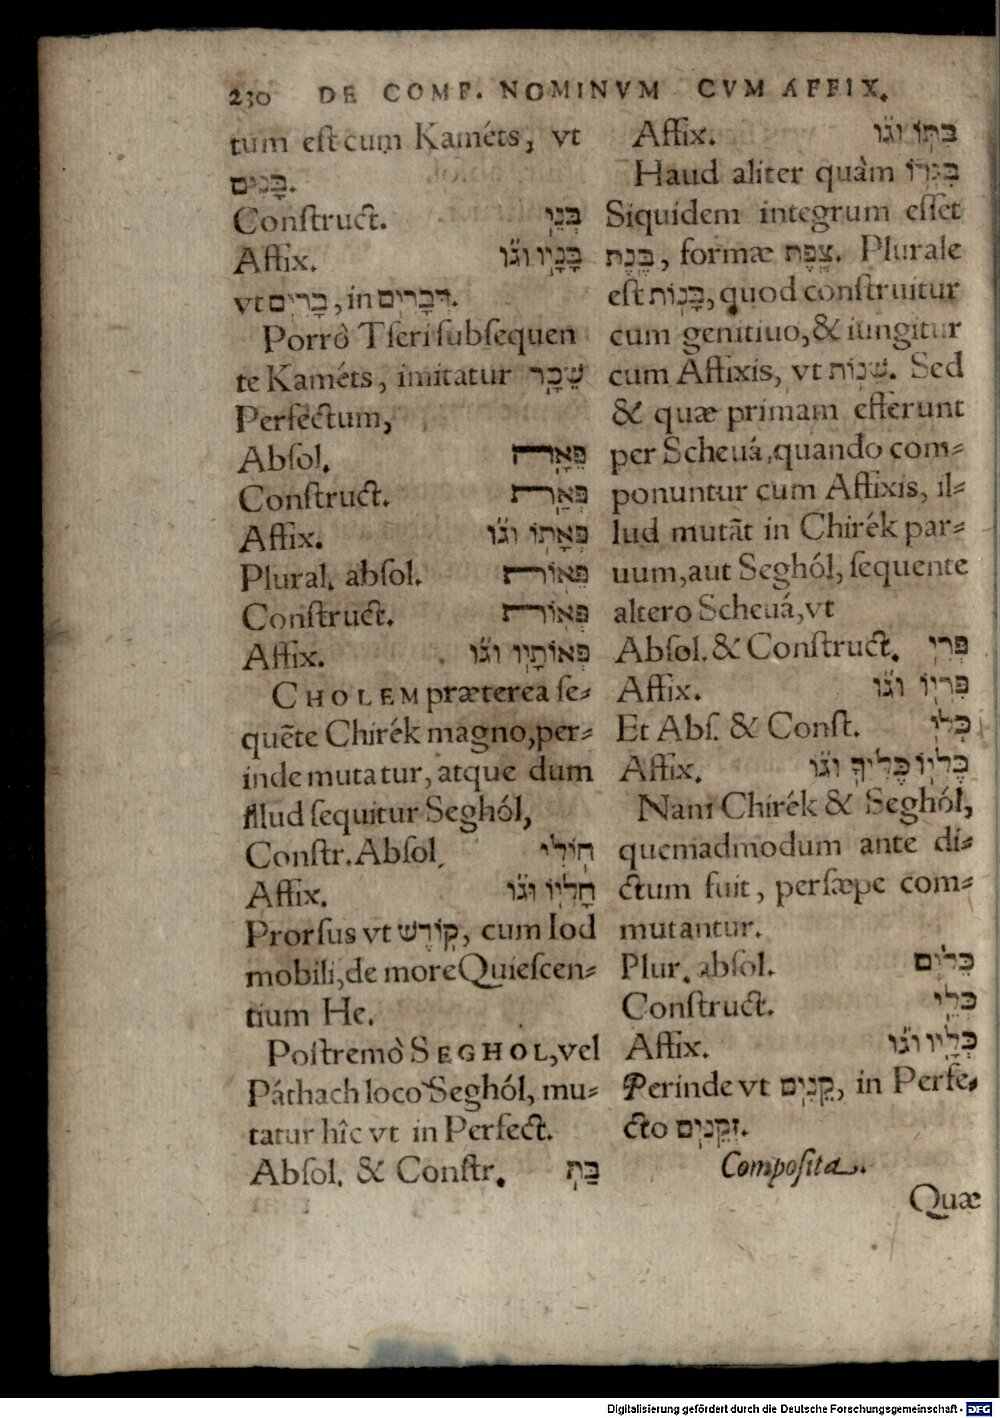 230 DE COMP. NOMINVM CVM AFFIX.
tum eſt cum Kaméts, vt
בָּנִים.
Conſtruct. בְּנֵי
Affix. בָּנָיו וגֹו
vt בָּרִים, in דְּבָרִים.
Porrò Tſeri ſubſequen
te Kaméts, imitatur שֵׁכָר
Perfectum,
Abſol. פְּאֵרת
Conſtruct. פְּאֵרת
Affix. פְּאָתוֹ וגֹו
Plural. abſol. פֵּאוֹת
Conſtruct. פְּאוֹת
Affix. פְּאוֹתָיו וגֹו
CHOLEM præterea ſe-
quēte Chirék magno, per-
inde mutatur, atque dum
illud ſequitur Seghól,
Conſtr. Abſol. חוֹלִי
Affix. חָלְיוֹ וגֹו
Prorſus vt קוֹדֶשׁ, cum Iod
mobili, de more Quieſcen-
tium He.
Poſtremò SEGHOL, vel
Páthach loco Seghól, mu-
tatur hîc vt in Perfect.
Abſol. & Conſtr. בַּת
Affix. בִּתּוֹ וגֹו
Haud aliter quàm בִּגְדוֹ
Siquidem integrum eſſet
בֶּנֶת, formæ צֶפֶת. Plurale
eſt בָּנוֹת, quod conſtruitur
cum genitiuo, & iungitur
cum Affixis, vt שָׁנוֹת. Sed
& quæ primam efferunt
per Scheuá, quando com-
ponuntur cum Affixis, il-
lud mutāt in Chirék par-
uum, aut Seghól, ſequente
altero Scheuá, vt
Abſol. & Conſtruct. פְּרִי
Affix. פִּרְיוֹ וגֹו
Et Abſ. & Conſt. כְּלִי
Affix. כֶּלְיוֹ כֶּלְיְךָ וגֹו
Nam Chirék & Seghól,
quemadmodum ante di-
ctum fuit, perſæpe com-
mutantur.
Plur. abſol. כֵּלִים
Conſtruct. כְּלֵי
Affix. כֵּלָיו וגֹו
Perinde vt קֵנִים, in Perfe-
cto זְקֵנִים.
Compoſita.
Quæ
Digitalisierung gefördert durch die Deutsche Forschungsgemeinschaft - DFG